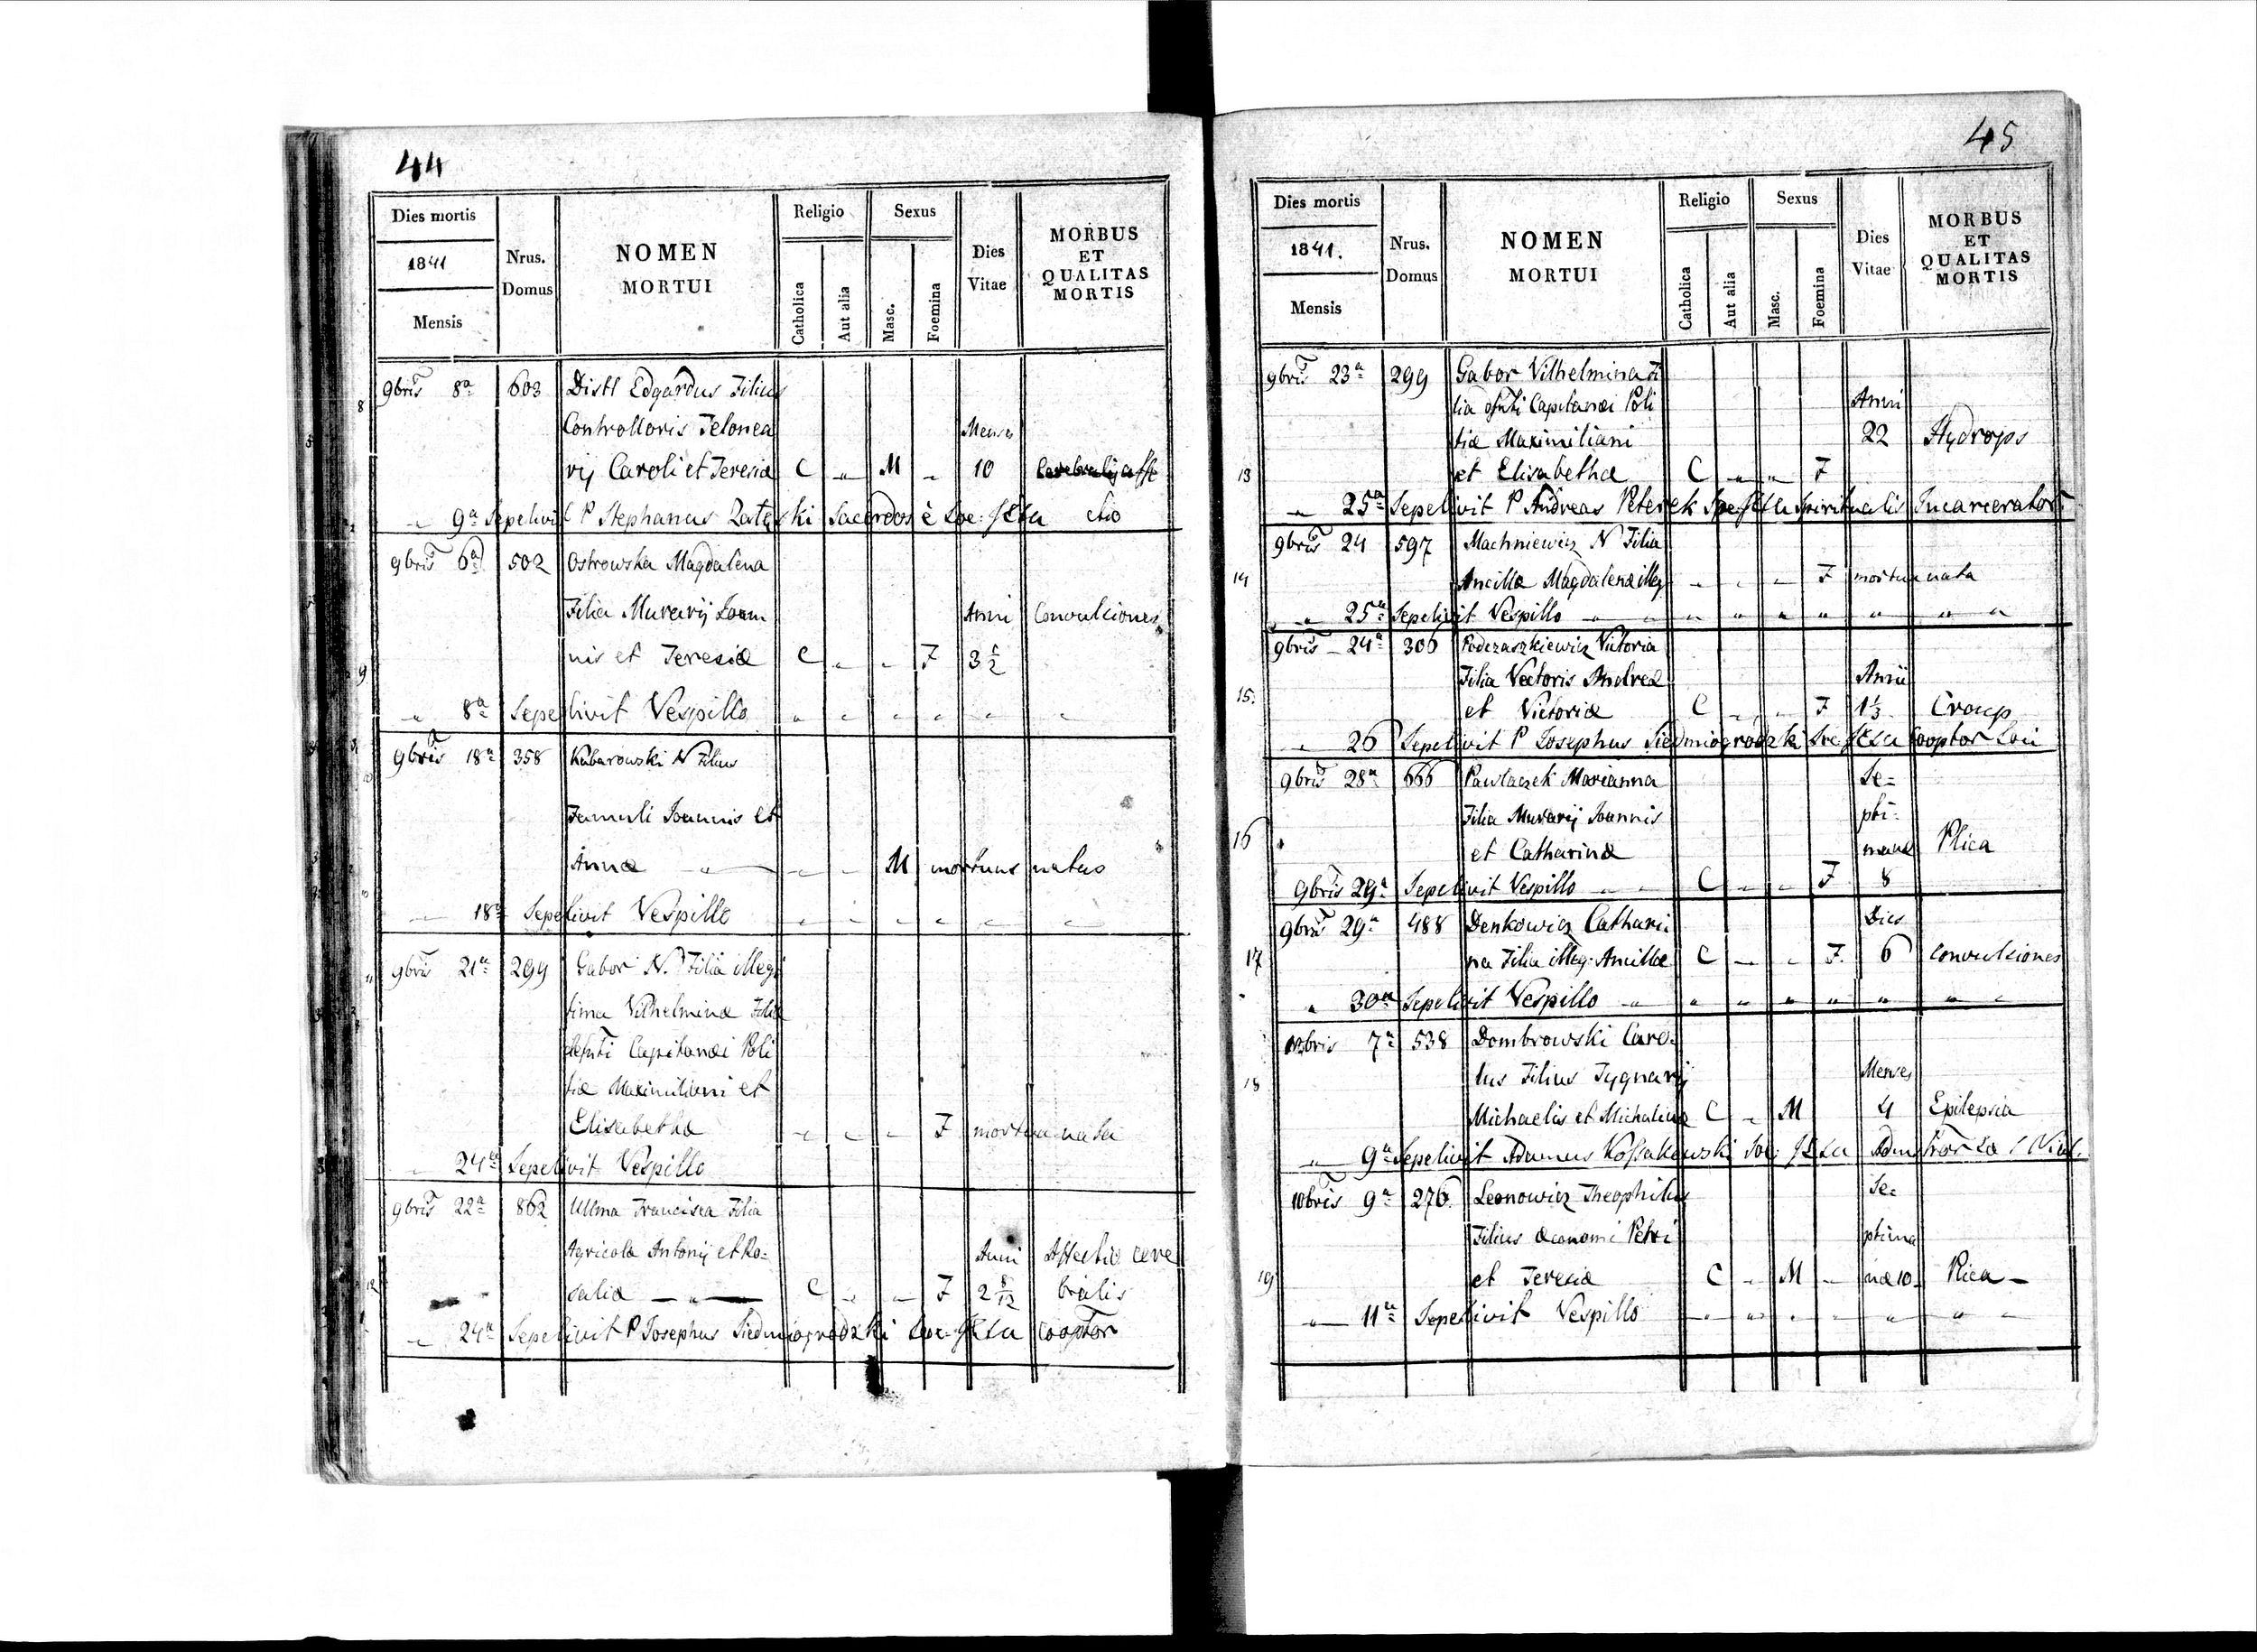 44
Dies mortis
1841
Mensis
Nrus. Domus
NOMEN MORTUI
Religio
Catholica
Aut alia
Sexus
Masc.
Foemina
Dies Vitae
MORBUS ET QUALITAS MORTIS
8
9bris 8a 603 Distl Edgardus Filius
Controlloris Telonea Menses
rij Caroli et Teresiæ C " M " 10
" 9a Sepelivit P Stephanus Sacerdos è
9bris 6a 502 Ostrowska Magdalena
Filia Murarij Joan Anni Convulciones
9 nis et Teresiæ C " " F 3 1/2
" 8a Sepelivit Vespillo " " " " " "
9bris 18a 358 Kubarowski N Filius
Famuli Joannis et
Annæ " " " M mortuus natus
" 18a Sepelivit Vespillo " " " " " "
9bris 21a 299 Gabor N. Filia illegi
tima Vilhelminæ Filiæ
defti Capitanei Poli
tiæ Maximiliani et
Elisabethæ " " " F mortua nata
" 24a Sepelivit Vespillo
9bris 22a 862 Ullma Francisca Filia
Agricolæ Antonij et Ro= Anni Affectio cere
12 saliæ " C " " F 2 8/12 bralis
" 24a Sepelivit P Josephus Siedmiogrodzki Cooptor
45
Dies mortis
1841.
Mensis
Nrus. Domus
NOMEN MORTUI
Religio
Catholica
Aut alia
Sexus
Masc.
Foemina
Dies Vitae
MORBUS ET QUALITAS MORTIS
9bris 23a 299 Gabor Vilhelmina Fi
lia dfti Capitanei Poli Anni
tiæ Maximiliani 22 Hydrops
13 et Elisabethæ C " " F
" 25a Sepelivit P Andreas Peterek spiritualis Incarcerator.
9bris 24 597 Machniewicz N Filia
14 Ancillæ Magdalenæ illeg " " " F mortua nata
" 25a Sepelivit Vespillo " " " " " " "
9bris 24a 306 Podczaszkiewicz Victoria
Filia Vectoris Andreæ Anni
15. et Victoriæ C " " F 1 1/3 Croup
" 26 Sepelivit P Josephus Siedmiogrodzki Cooptor
9bris 28a 666 Pawlaczek Marianna Se=
Filia Murarij Joannis pti=
16 et Catharinæ manæ Plica
9bris 29a Sepelivit Vespillo " " C " " F 8
9bris 29a 488 Denkowicz Cathari Dies
17 na Filia illeg. Ancillæ C " " F. 6 Convulciones
" 30a Sepelivit Vespillo " " " " " " " "
10bris 7a 538 Dombrowski Caro=
18 lus Filius Tygnarij Menses
Michaelis et Michalinæ C " M 4 Epilepsia
" 9a Sepelivit Adamus Kossakowski
10bris 9a 276. Leonowicz Theophilus Se=
Filius œconomi Petri ptima
19 et Teresiæ C " M " næ 10 Plica
" 11a Sepelivit Vespillo " " " " " " "